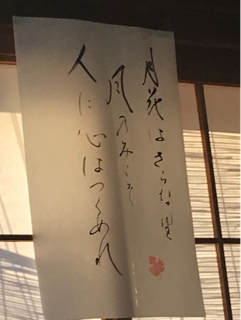 月花はさらな里
風のみこそ
人に心はつくめれ